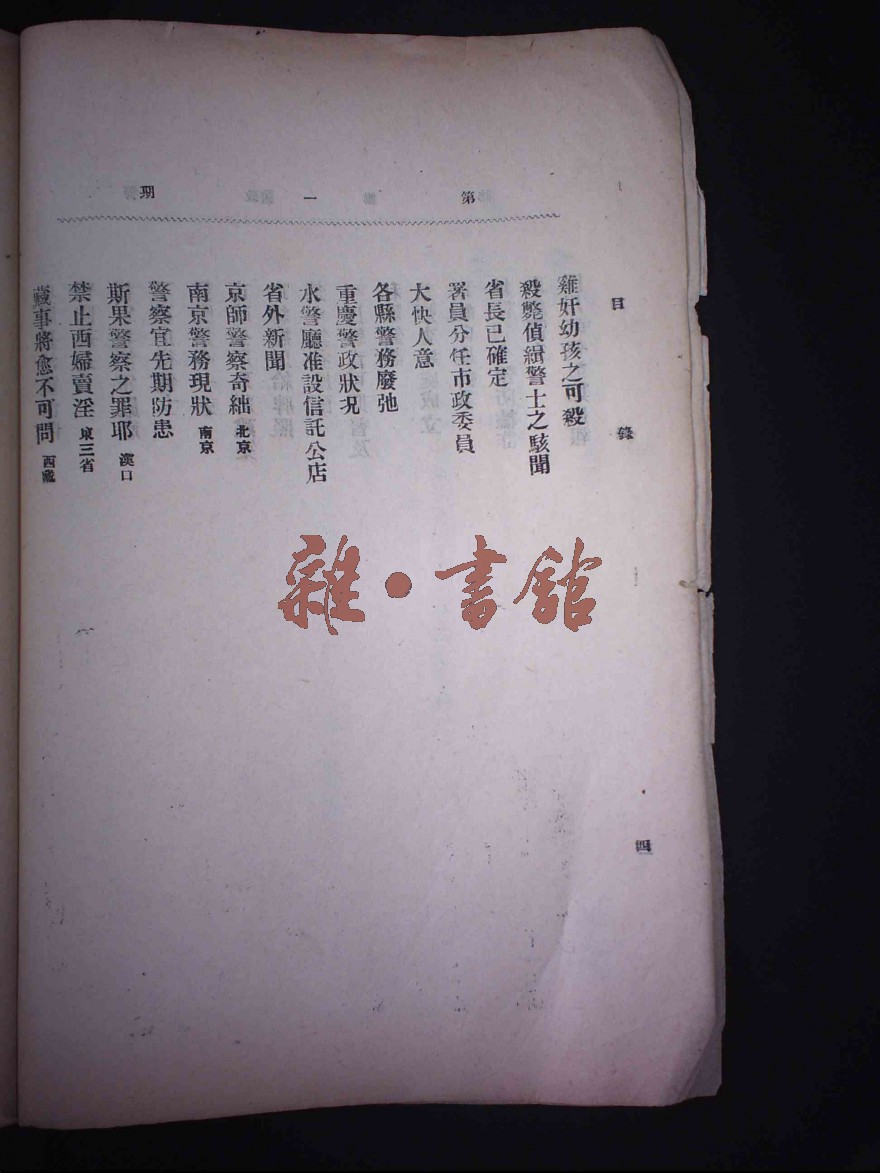 第一期
目錄
四
雞奸幼孩之可殺
殺斃偵緝警士之駭聞
省長已確定
署員分任市政委員
大快人意
各縣警務廢弛
重慶警政狀況
水警廳准設信託公店
省外新聞
京師警察奇絀 北京
南京警務現狀 南京
警察宜先期防患
斯果警察之罪耶 漢口
禁止西婦賣淫 東三省
藏事將愈不可問 西藏
雜·書館